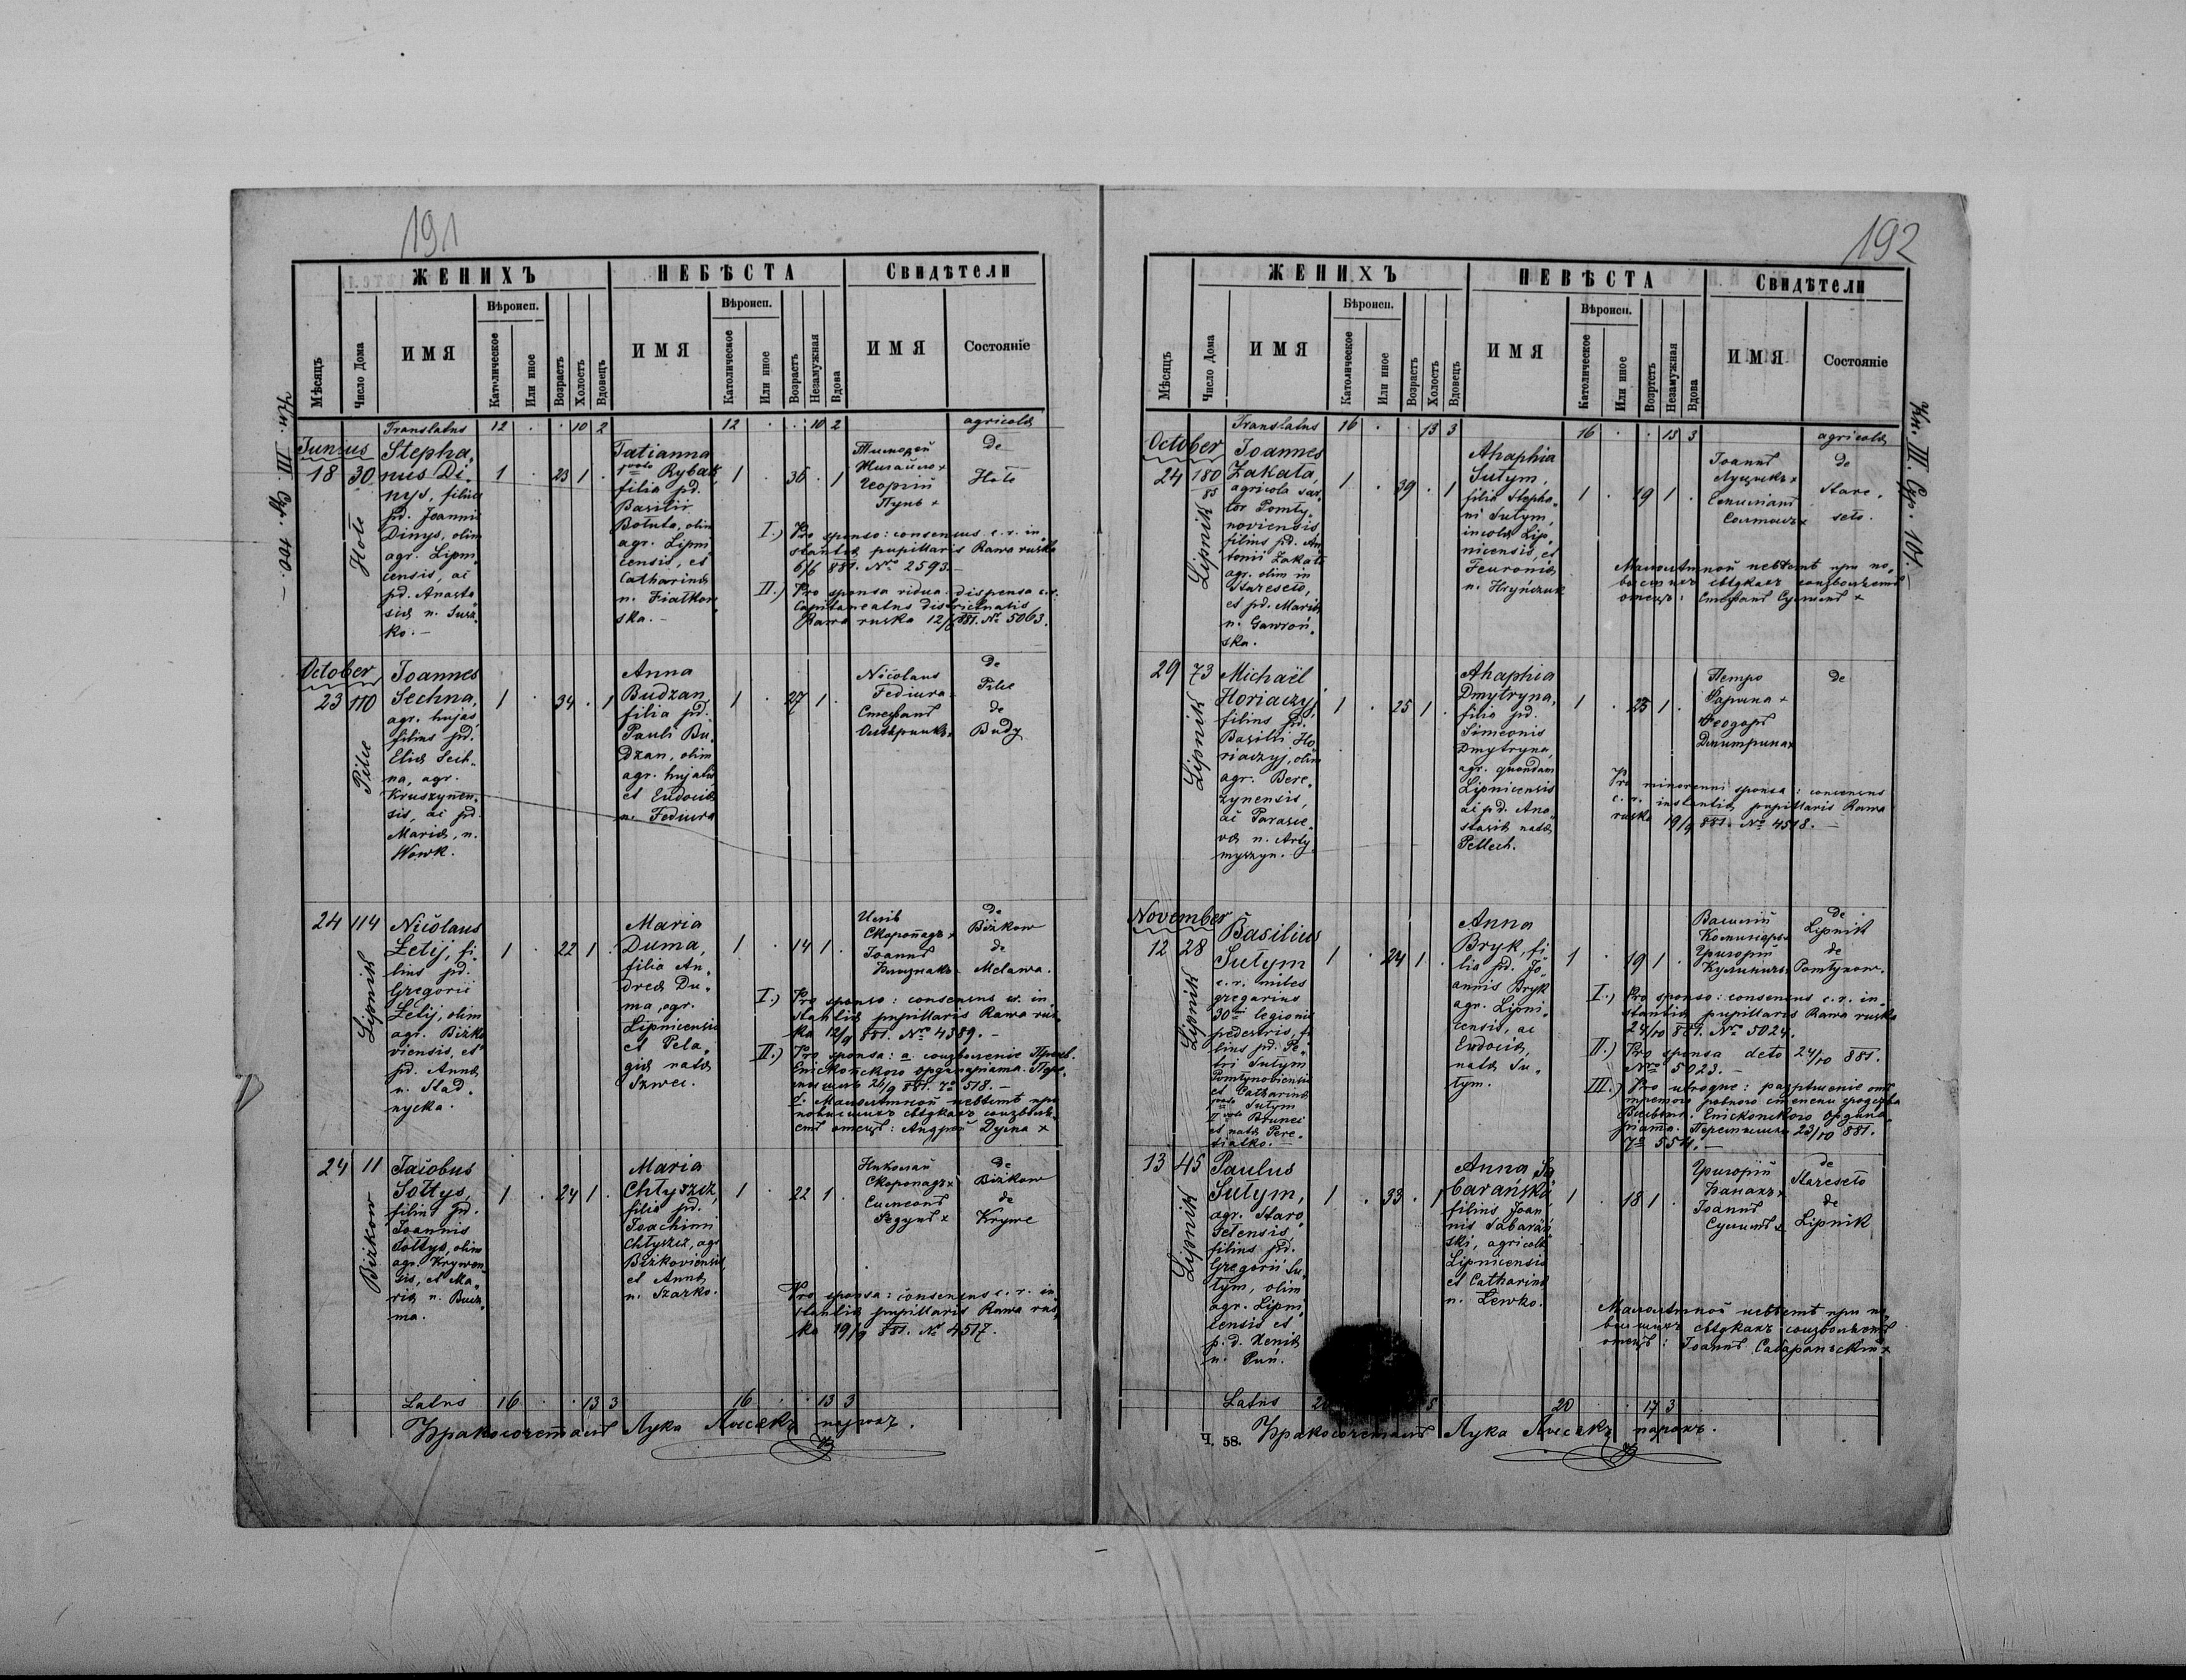 191
ЖЕНИХЪ
НЕБѢСТА
Свидѣтели
Мѣсяцъ
Число Дома
ИМЯ
Вѣроисп.
Католическое
Или иное
Возрастъ
Холостъ
Вдовецъ
ИМЯ
Вѣроисп.
Католическое
Или иное
Возрастъ
Незамужная
Вдова
ИМЯ
Состоянiе
Translatus 12 . . 10 2 12 . . 10 2 agricola
Junius
18 30
Hole
Stepha„
nus Di„
nys, filius
pd. Joannis
Dinys, olim
agr. Lipni„
censis, ac
pd. Anasta
siae n.
ko. —
1 . 23 1 .
Tatianna
Rybak
filia pd.
Basilii
Botuto, olim
agr. Lipni
censis, et
Catharina
n. Fiatkow
ska. —
1 . 36 . 1
Тимофей
Георгiй
Пунь +
de
Hole
I.) Pro sponso: consensus c. r. in„
stantiae pupillaris Rawa ruska
6/6 881. Nro 2593. —
II.) Pro sponsa vidua dispensa c. r.
Capitaneatus districtualis
Rawa ruska 12/6 881. No 5063.
October
23 110
Pile
Joannes
Sechna,
agr. hujas,
filius pd.
Eliae Sech„
na, agr.
Kruszynen„
sis, ac pd.
Maria, n.
Wowk.
1 . 34 . 1
Anna
Budzan
filia pd.
Pauli Bu„
dzan, olim
agr. hujatis
et Eudocia
n. Fediura
1 . 27 1 .
Nicolaus
Fediura
Стефанъ
de
Pile
de
Budy
24 114
Lipnik
Nicolaus
Zetij, fi„
lius pd.
Gregorii
Zetij, olim
agr. Bizko
viensis, et
pd. Anna
n. Stad„
nycka.
1 . 22 1 .
Maria
Duma,
filia An„
dreae Du„
ma, agr.
Lipnicensis
et Pela„
gia nata
Szwec.
1 . 14 1 .
Скоропадъ +
Iоаннъ
de
Bizkow
de
Melawa.
I.) Pro sponso: consensus c. r. in„
stantiae pupillaris Rawa rus„
ka 12/9 881. Nro 4389. —
II.) Pro sponsa: a. соизволенiе
Епископского ординарiата.
26/9 881. 518. —
отецъ: Андрей Дума +
24 11
Bizkow
Jacobus
Sottys,
filius pd.
Joannis
Sottys, olim
agr. Krywen„
sis, et Ma„
ria n.
ma.
1 . 24 1 .
Maria
Chtyszcz,
filia pd.
Joachimi
Chtyszcz, agr.
Bizkoviensis
et Anna
n. Szarko.
1 . 22 1 .
Николай
Скоропадъ +
Симеонъ
Федунъ +
de
Bizkow
de
Krywe
Pro sponsa: consensus c. r. in„
stantiae pupillaris Rawa rus„
ka 19/9 881. No 4517.
Latus 16 . . 13 3 16 . . 13 3
Бракосочеталъ Лука парохъ.
Кн. III. Стр. 100. —
192
ЖЕНИХЪ
НЕВѢСТА
Свидѣтели
Мѣсяцъ
Число Дома
ИМЯ
Бѣроисп.
Католическое
Или иное
Возрастъ
Холостъ
Вдовецъ
ИМЯ
Вѣроисп.
Католическое
Или иное
Возртстъ
Незамужная
Вдова
ИМЯ
Состоянiе
Translatus 16 . . 13 3 16 . . 13 3 agricola
October
24 180
85
Lipnik
Joannes
Zakata,
agricola sar„
tor Pomty„
noviensis,
filius pd. An
tonii Zakata
agr. olim in
Stareseto,
et pd. Maria
n. Gawroń„
ska.
1 . 39 . 1
Ahaphia
Sutym,
filia Stepha„
ni Sutym,
incola Lip„
nicensis, et
Feuronia
n. Hryńczuk
1 . 19 1 .
Iоаннъ
de
Stare„
seto.
отецъ: Стефанъ Сутымъ +
29 73
Lipnik
Michaël
Horiaczyj
filius pd.
Basilii Ho
riaczyj, olim
agr. Bere„
zynensis,
ac Parasce„
va n. Arty„
myszyn.
1 . 25 1 .
Ahaphia
Dmytryna,
filia pd.
Simeonis
Dmytryna,
agr. quondam
Lipnicensis
ac pd. Ana„
stasia nata
Pellech.
1 . 23 1 .
Петро
Фарина +
Феодоръ
Дмитрина +
de
Pro minorenni sponsa: consensus
c. r. instantiae pupillaris Rawa
ruska 19/9 881. No 4518. —
November
12 28
Lipnik
Basilius
Sutym
c. r. miles
gregarius
30mi legionis
pedestris, fi
lius pd. Pe„
tri Sutym
Pomtynoviensis
et Catharina
Sutym
II voto Brunec
et nata Pere„
siatko. —
1 . 24 1 .
Anna
Bryk, fi„
lia pd. Jo„
annis Bryk
agr. Lipni„
censis, ac
Eudocia,
nata Su„
tym.
1 . 19 1 .
Василiй
Григорiй
de
Lipnik
de
Pomtynow.
I.) Pro sponso: consensus c. r. in„
stantiae pupillaris Rawa ruska
24/10 881. Nro 5024.
II.) Pro sponsa deto 24/10 881.
Nro 5023. —
III.) Pro utroque: разрѣшенiе отъ
третого ровного степени сродства
Епископского Ордина„
рiата. 23/10 881.
13 45
Lipnik
Paulus
Sutym,
agr. Staro„
setensis
filius pd.
Gregorii Su„
tym, olim
agr. Lipni„
censis et
p. d. Xenia
n. Puń.
1 . 33 . 1
Anna Sa
barańska
filius Joan
nis Sabarań
ski, agricola
Lipnicensis
et Catharina
n. Lewko.
1 . 18 1 .
Григорiй
Банахъ +
Iоаннъ
Сутымъ +
de
Stareseto
de
Lipnik
отецъ: Iоаннъ Сабараньскiй +
Latus 20 . . 17 3
Ч. 58. Бракосочеталъ Лука парохъ.
Кн. III. Стр. 101. —